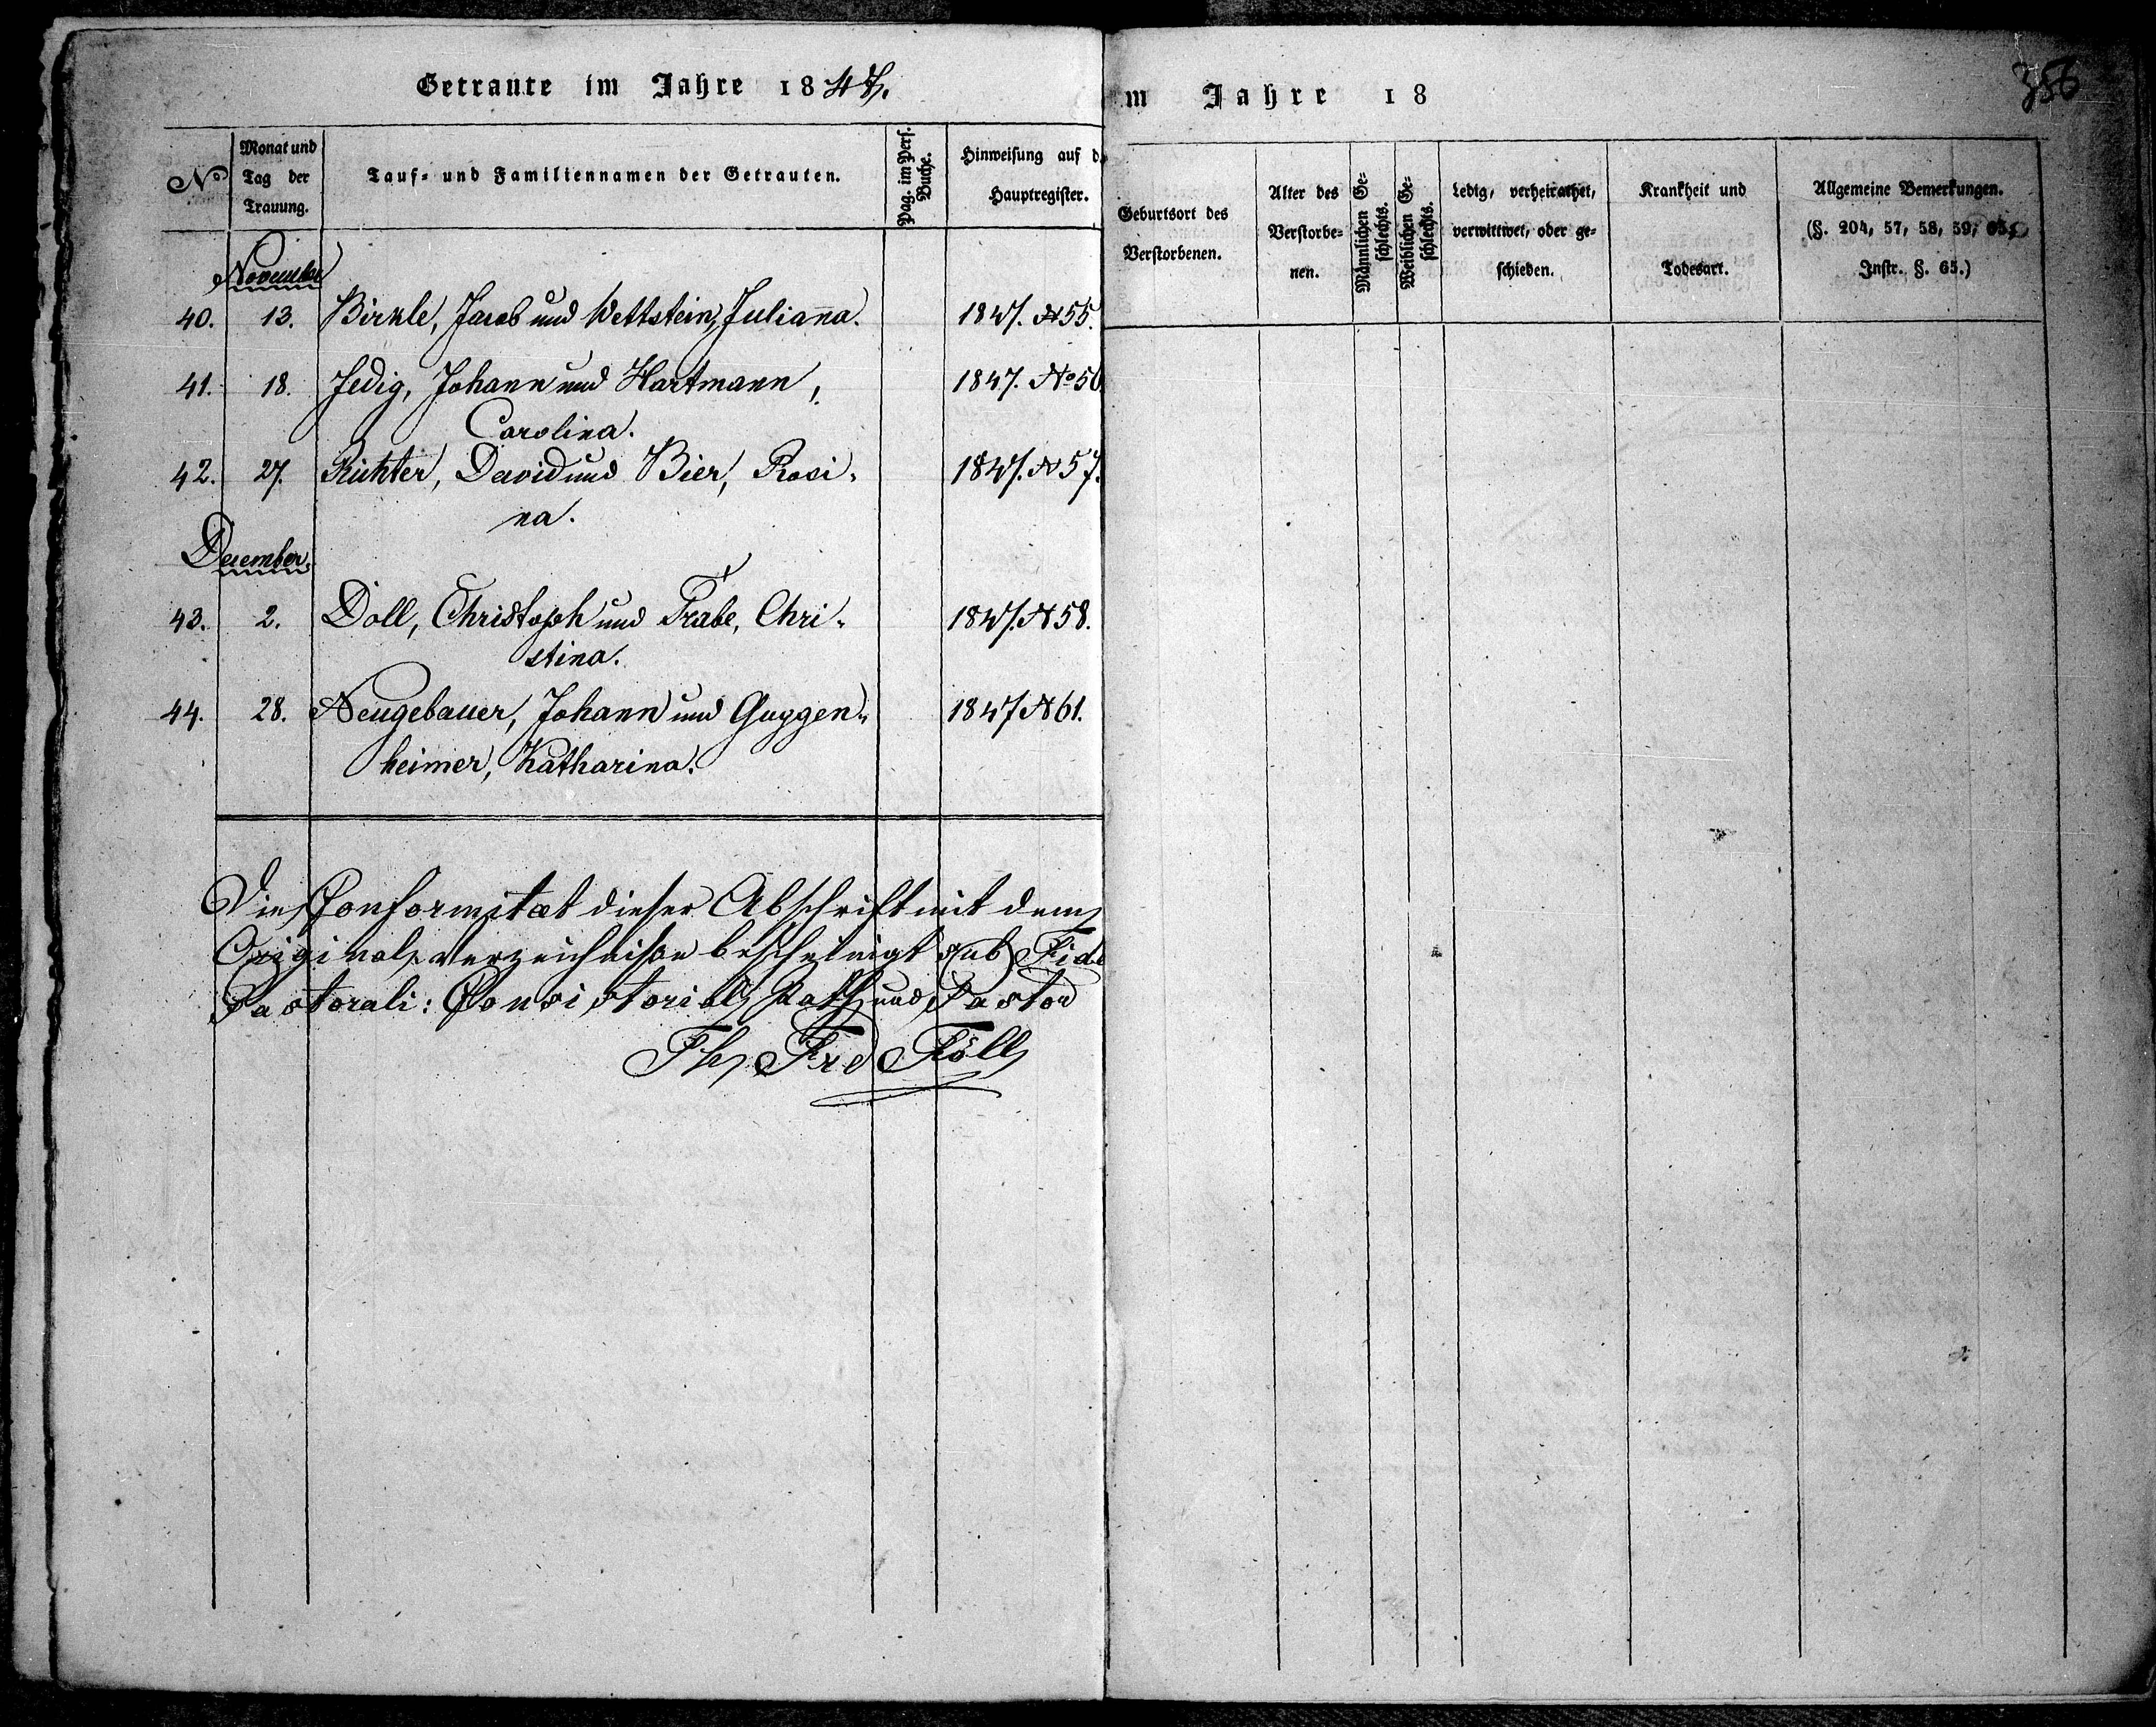 Getraute im Jahre 1847.
No
Monat und
Tag der
Trauung.
Tauf- und Familiennamen der Getrauten.
Pag. im Pers.
Buche.
Hinweisung auf d
Hauptregister.
November
40. 13. Birkle, Jacob und Wettstein, Julian̄a. 1847. N 55.
41. 18. Jedig, Johann und Hartmann, 1847. No 56
Carolina.
42. 27. Richter, David und Bier, Rosi- 1847. N 57.
na.
December.
43. 2. Doll, Christoph und Trabe, Chri- 1847. N 58.
stina.
44. 28. Neugebauer, Johann und Guggen- 1847 N 61.
heimer, Katharina.
Die Conformitæt dieser Abschrift mit dem
Original-Verzeichnisse bescheinigt sub Fide
Pastorali: Consistorial-Rath und Pastor
Fr. Föll
m Jahre 18
356
Geburtsort des
Verstorbenen.
Alter des
Verstorbe-
nen.
Männlichen Ge-
schlechts.
Weiblichen Ge-
schlechts.
Ledig, verheirathet,
verwittwet, oder ge-
schieden.
Krankheit und
Todesart.
Allgemeine Bemerkungen.
(§. 204, 57, 58, 59,
Instr. §. 65.)